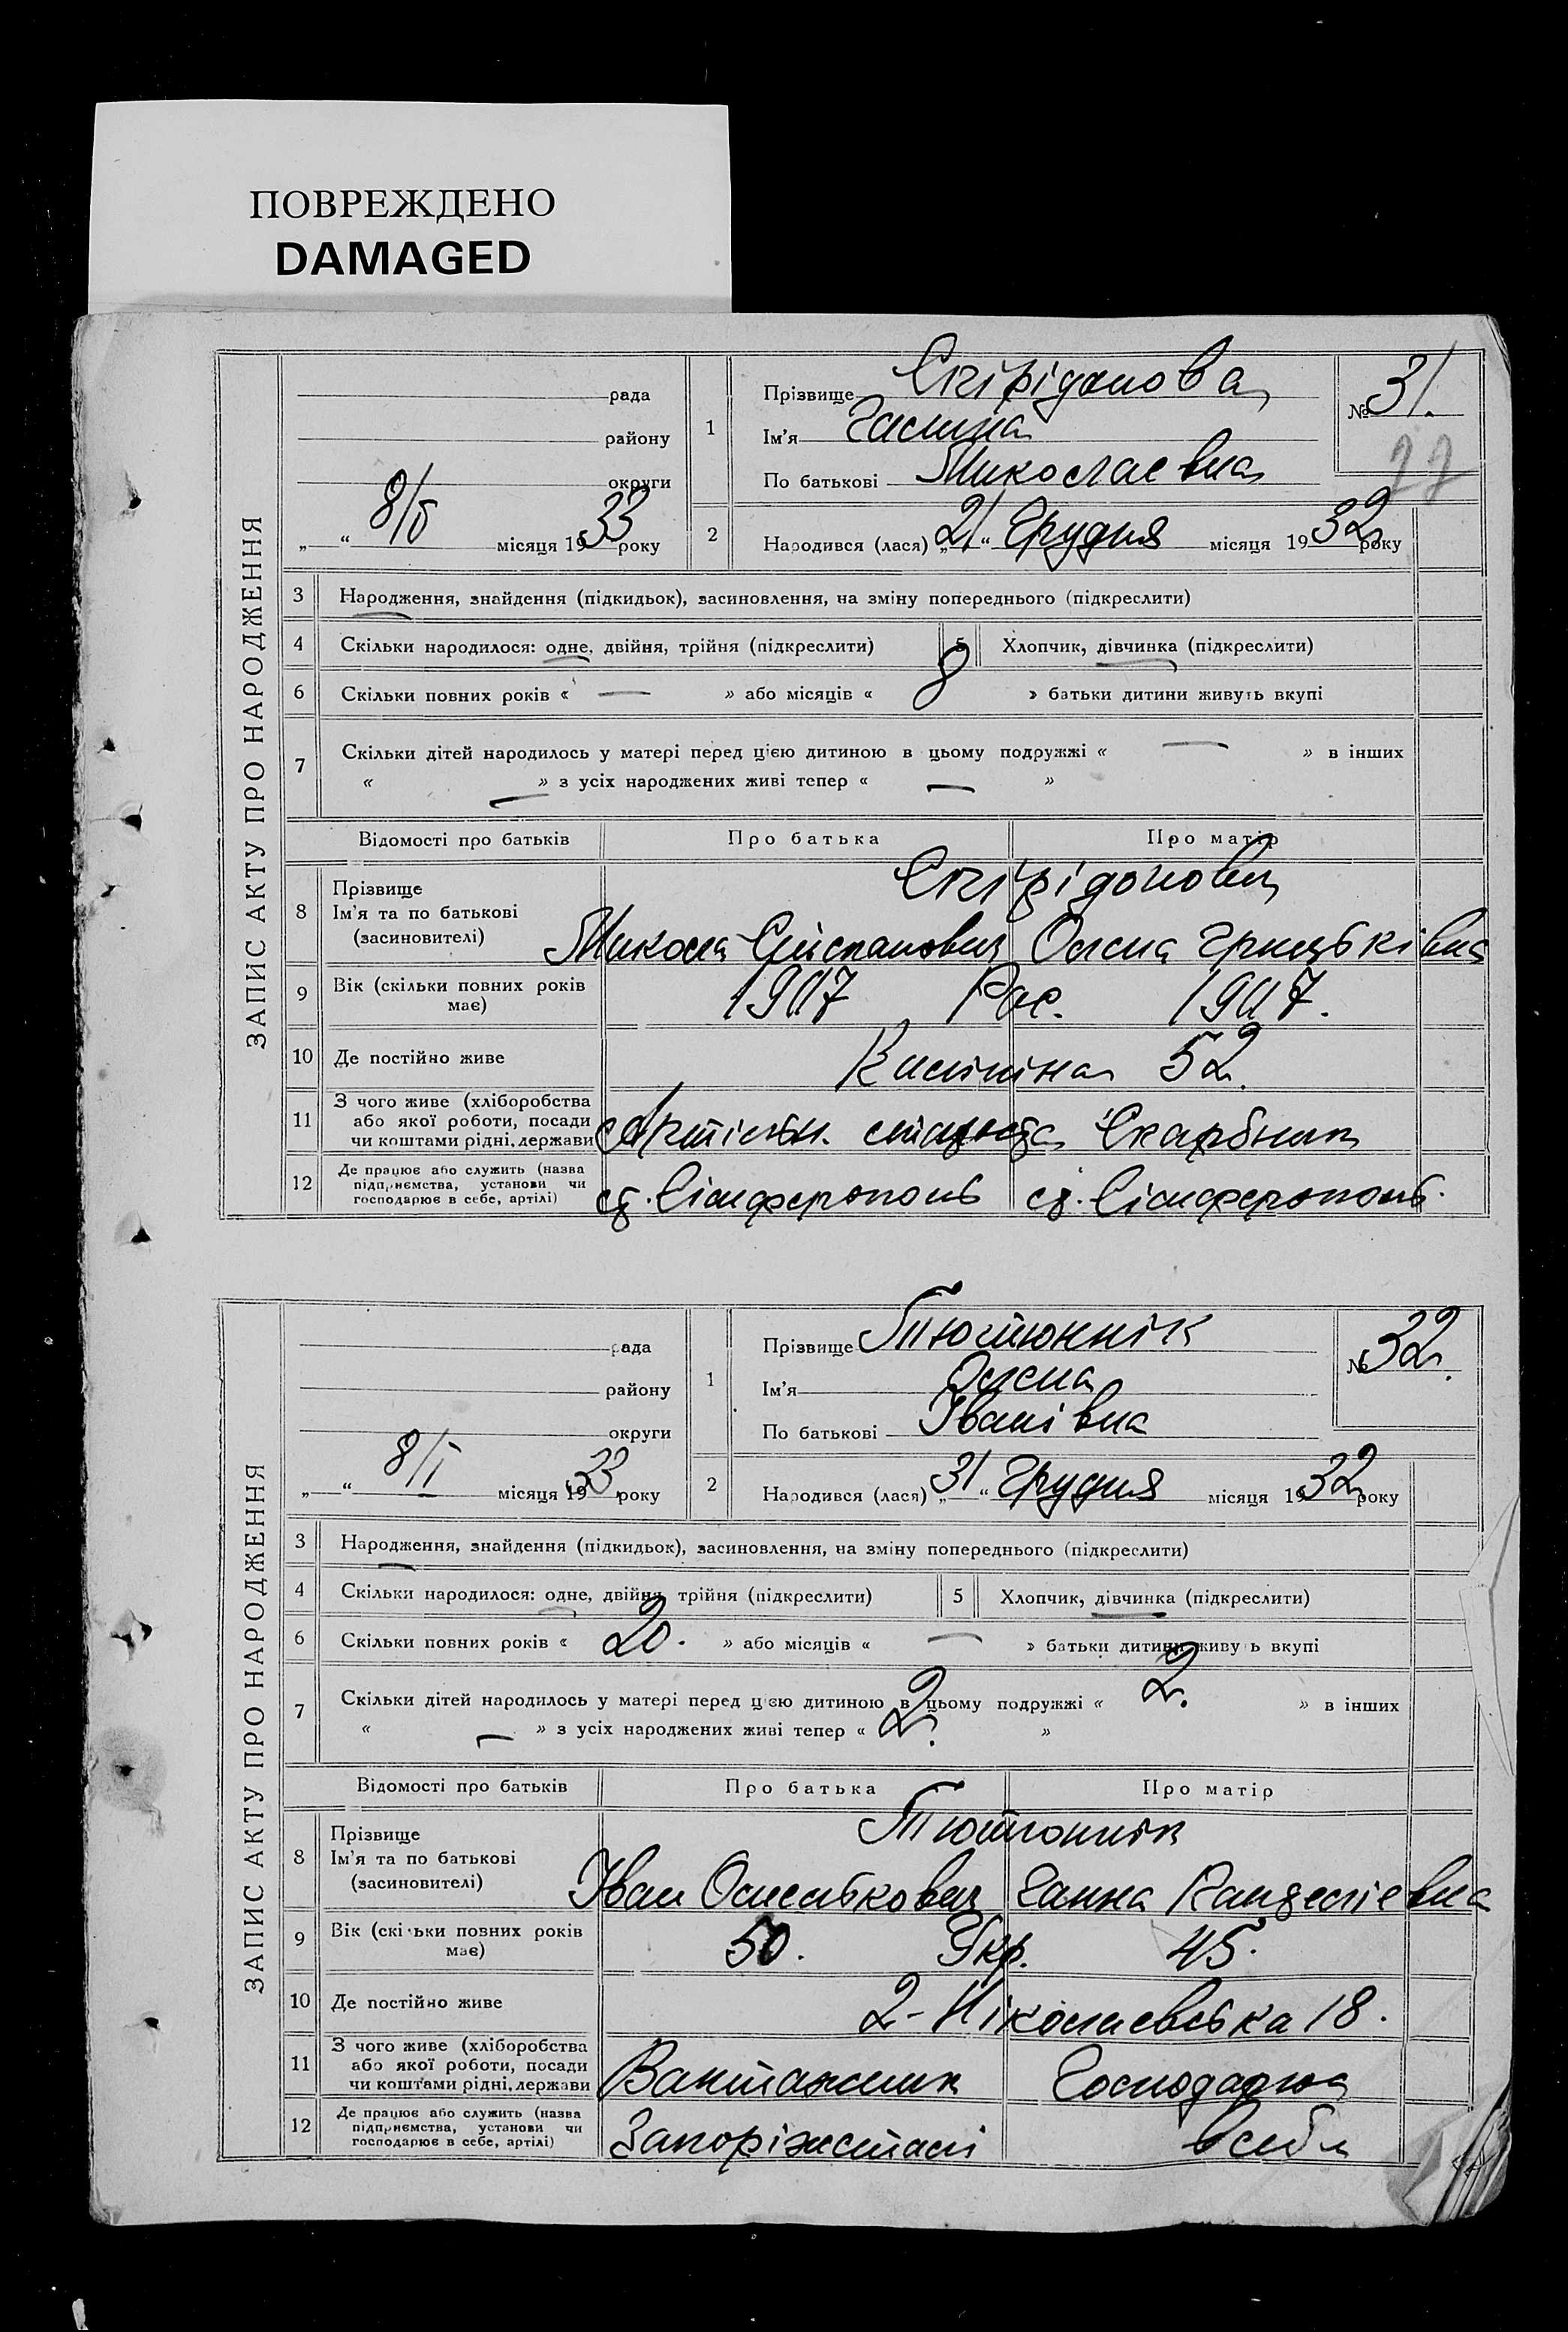 ПОВРЕЖДЕНО
DAMAGED
ЗАПИС АКТУ ПРО НАРОДЖЕННЯ
рада
району
округи
„ “ 8/I місяця 1933 року
1
Прізвище Спірідонова
Ім'я Галина
По батькові Миколаевна
№ 31.
2
Народився (лася) „21“ Грудня місяця 1932 року
3 Народження, знайдення (підкидьок), засиновлення, на зміну попереднього (підкреслити)
4 Скільки народилося: одне, двійня, трійня (підкреслити) 5 Хлопчик, дівчинка (підкреслити)
6 Скільки повних років « — » або місяців « 8 » батьки дитини живуть вкупі
7 Скільки дітей народилось у матері перед цією дитиною в цьому подружжі « — » в інших
« — » з усіх народжених живі тепер « — »
Відомості про батьків Про батька Про матір
8 Прізвище Ім'я та по батькові (засиновителі)
Спірідонови
Микола Олена Грицьківна
9 Вік (скільки повних років має) 1907 Рос. 1907.
10 Де постійно живе Калініна 52.
11 З чого живе (хліборобства або якої роботи, посади чи коштами рідні, держави Скарбник
12 Де працює або служить (назва підприємства, установи чи господарює в себе, артілі) ст. Сімферополь ст. Сімферополь.
ЗАПИС АКТУ ПРО НАРОДЖЕННЯ
рада
району
округи
„ “ 8/I місяця 1933 року
1
Прізвище Тютюннік
Ім'я Олена
По батькові Іванівна
№ 32.
2
Народився (лася) „31“ Грудня місяця 1932 року
3 Народження, знайдення (підкидьок), засиновлення, на зміну попереднього (підкреслити)
4 Скільки народилося: одне, двійня, трійня (підкреслити) 5 Хлопчик, дівчинка (підкреслити)
6 Скільки повних років « 20. » або місяців « — » батьки дитини живуть вкупі
7 Скільки дітей народилось у матері перед цією дитиною в цьому подружжі « 2. » в інших
« — » з усіх народжених живі тепер « 2. »
Відомості про батьків Про батька Про матір
8 Прізвище Ім'я та по батькові (засиновителі)
Тютюннік
Іван Ганна
9 Вік (скільки повних років має) 50. Укр. 45.
10 Де постійно живе 2-Ніколаевська 18.
11 З чого живе (хліборобства або якої роботи, посади чи коштами рідні, держави Вантажник Господарка
12 Де працює або служить (назва підприємства, установи чи господарює в себе, артілі) Запоріжсталі в себе